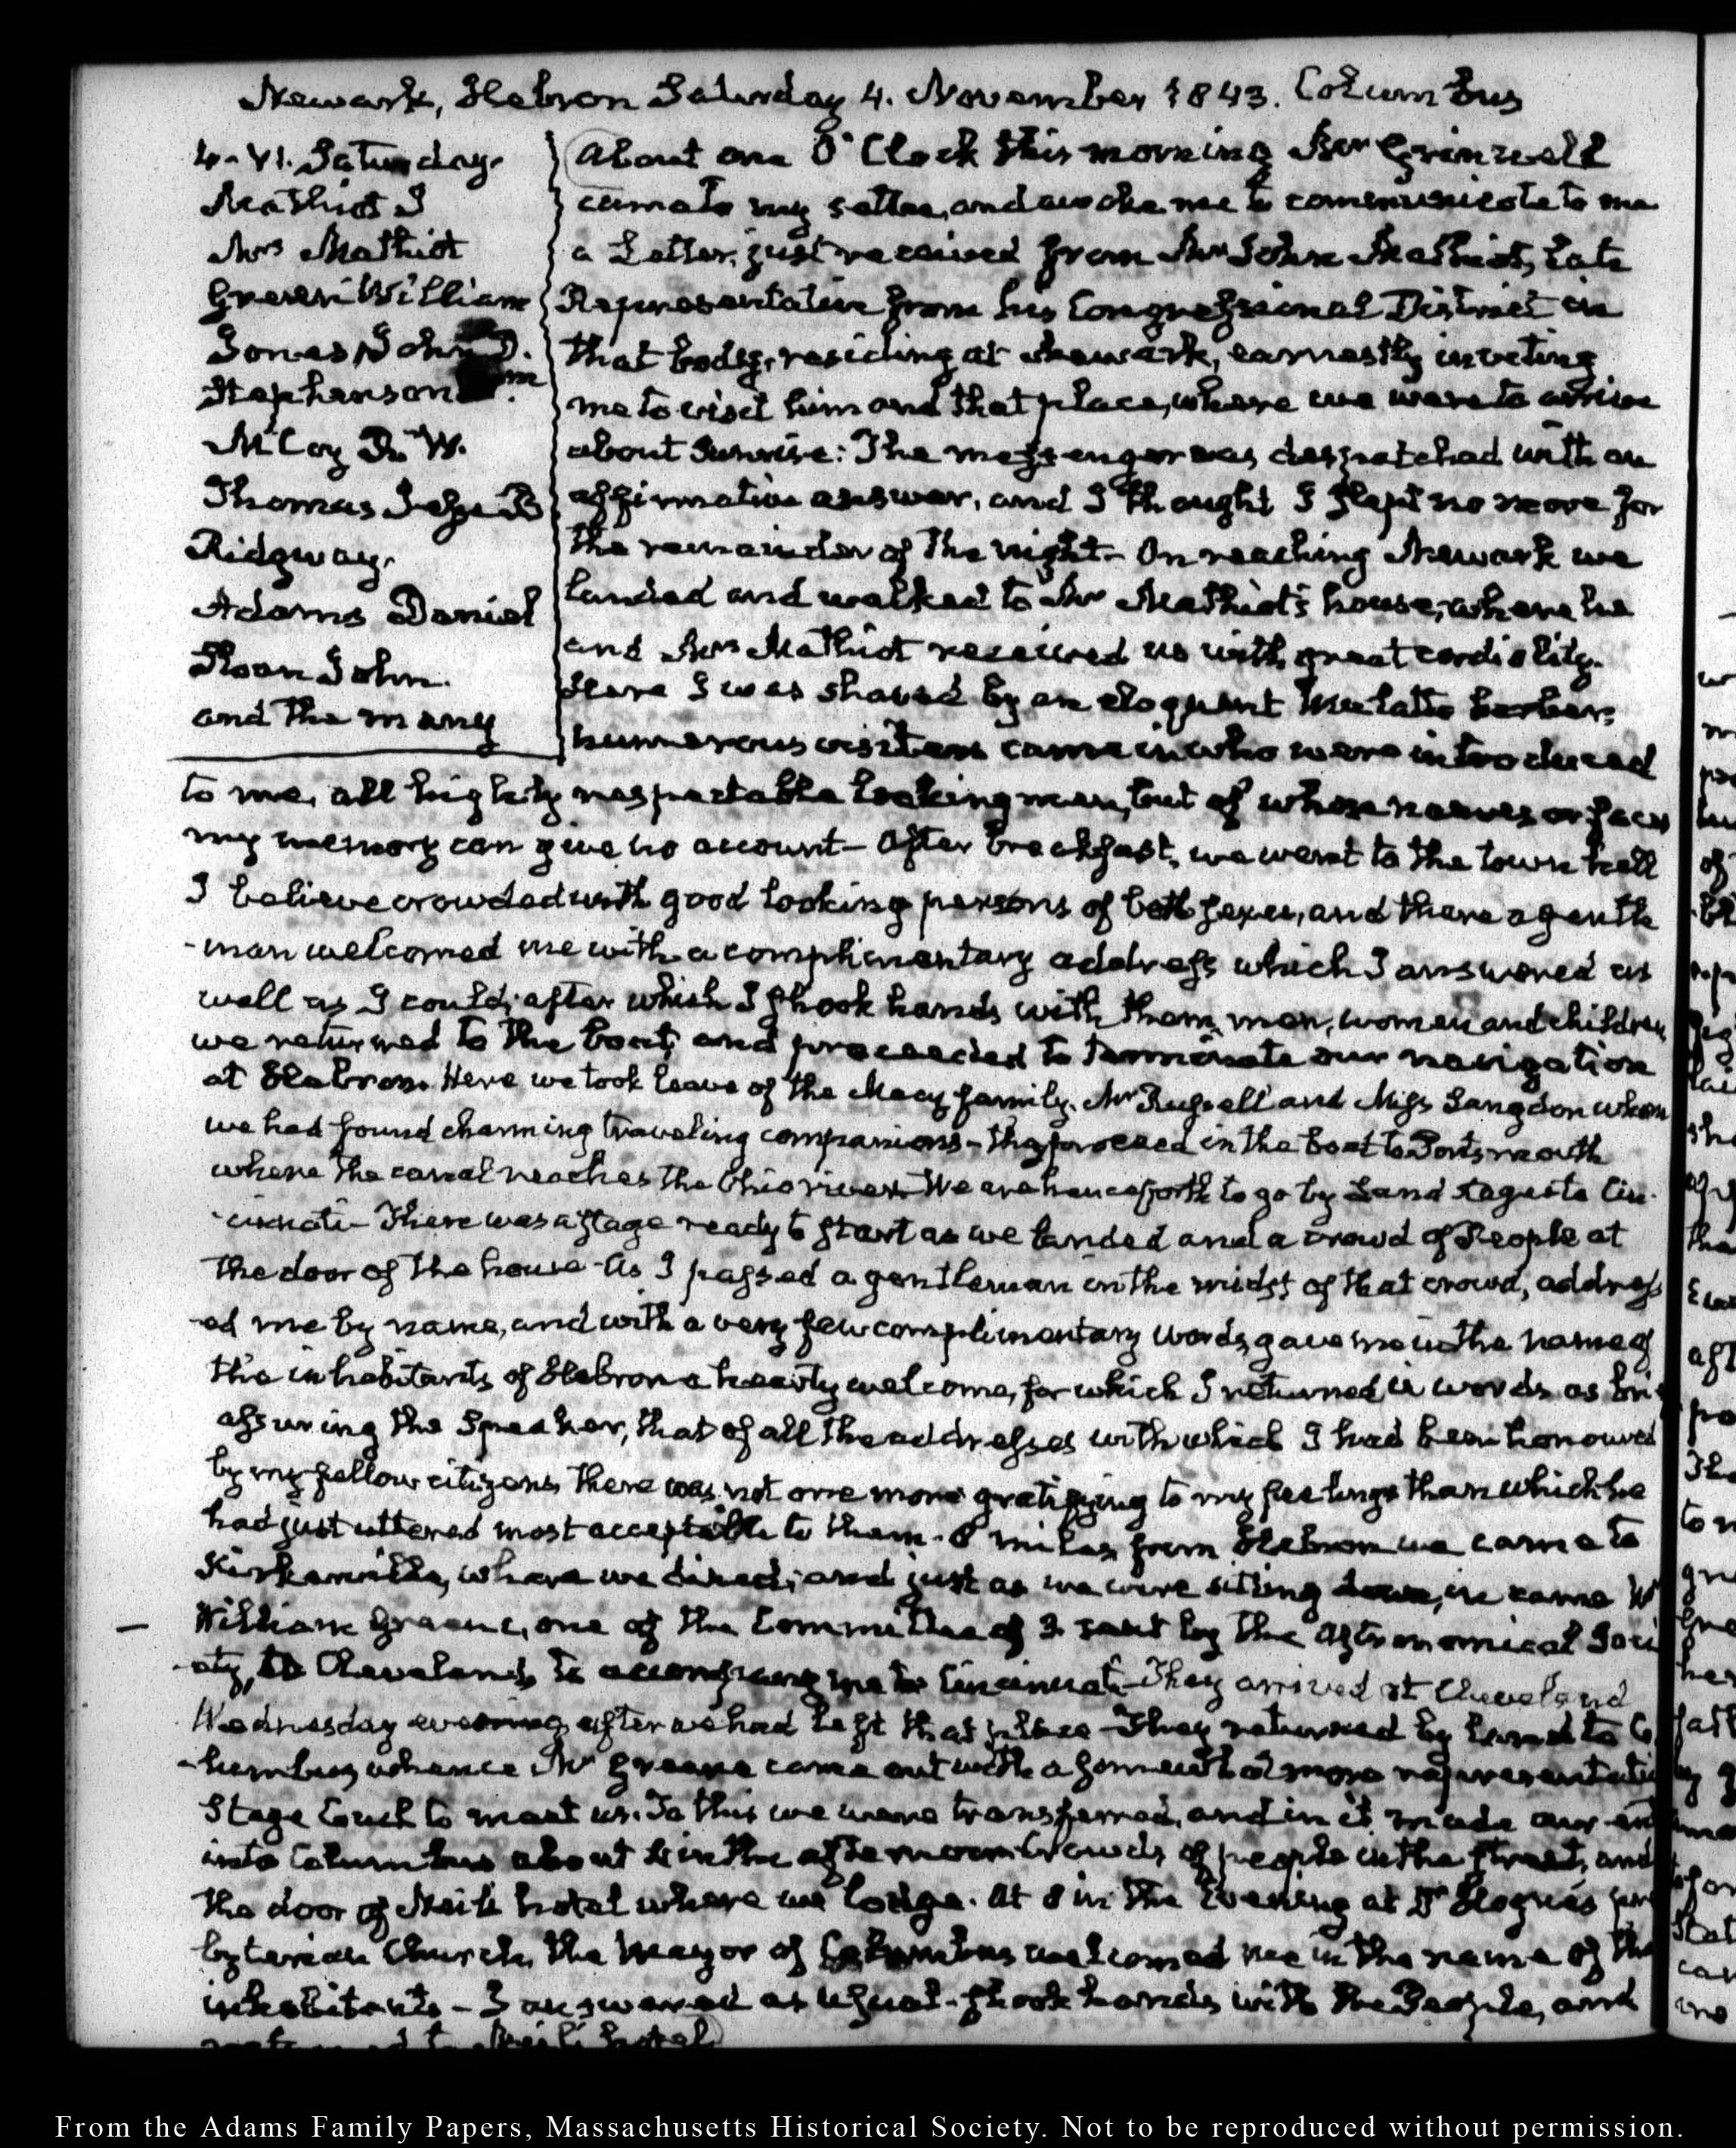 Newark, Hebron Saturday 4. November 1843. Columbus
4. VI. Saturday.
Mathiot J
Mrs Mathiot
Green William
Jones John D.
Stephenson
McCoy W.
Thomas John
Ridgway.
Adams Daniel
Sloan John.
and the many
About one O'Clock this morning Mr Grinnell
came to my settee, and awoke me to communicate to me
a Letter, just received from Mr Joshua Mathiot, late
Representative from his Congressional District in
that body, residing at Newark, earnestly inviting
me to visit him and that place, where we were to arrive
about Sunrise: The messenger was despatched with an
affirmative answer, and I thought I slept no more for
the remainder of the night. On reaching Newark we
landed and walked to Mr Mathiot's house, where he
and Mrs Mathiot received us with great cordiality.
Here I was shaved by an eloquent Mulatto barber;
numerous visitors came in who were introduced
to me, all highly respectable looking men, but of whose names or faces
my memory can give no account— After breakfast, we went to the town hall
I believe crowded with good looking persons of both sexes, and there a gentle
-man welcomed me with a complimentary address which I answered as
well as I could; after which I shook hands with them, men, women and children
we returned to the boat, and proceeded to terminate our navigation
at Hebron. Here we took leave of the Macy family. Mr Russell and Miss Langdon whom
we had found charming traveling companions— they proceed in the boat to Portsmouth
where the canal reaches the Ohio river. We are henceforth to go by Land Stages to Cin-
-cinnati— There was a stage ready to start as we landed and a crowd of People at
the door of the house— As I passed a gentleman in the midst of that crowd, address
-ed me by name, and with a very few complimentary words, gave me in the name of
the inhabitants of Hebron a hearty welcome, for which I returned in words as
assuring the Speaker, that of all the addresses with which I had been honoured
by my fellow citizens, there was not one more gratifying to my feelings than which he
had just uttered most acceptable to them. 8 miles from Hebron we came to
Kirkersville, where we dined; and just as we were sitting down, in came
William Greene, one of the Committee of 3. sent by the Astronomical Soci
-ety, to Cleveland, to accompany me to Cincinnati— They arrived at Cleveland
Wednesday evening after we had left that place— They returned by land to Co
-lumbus whence Mr Greene came out with a somewhat more
Stage Coach to meet us. To this we were transferred, and in it made our
into Columbus about in the afternoon Crowds of people in the Street, and
the door of Neil's hotel where we lodge. At 8 in the Evening at Dr Hoge's
byterian Church, the Mayor of Columbus welcomed me in the name of the
inhabitants— I answered as usual— shook hands with the People, and
returned to Neil's hotel
From the Adams Family Papers, Massachusetts Historical Society. Not to be reproduced without permission.